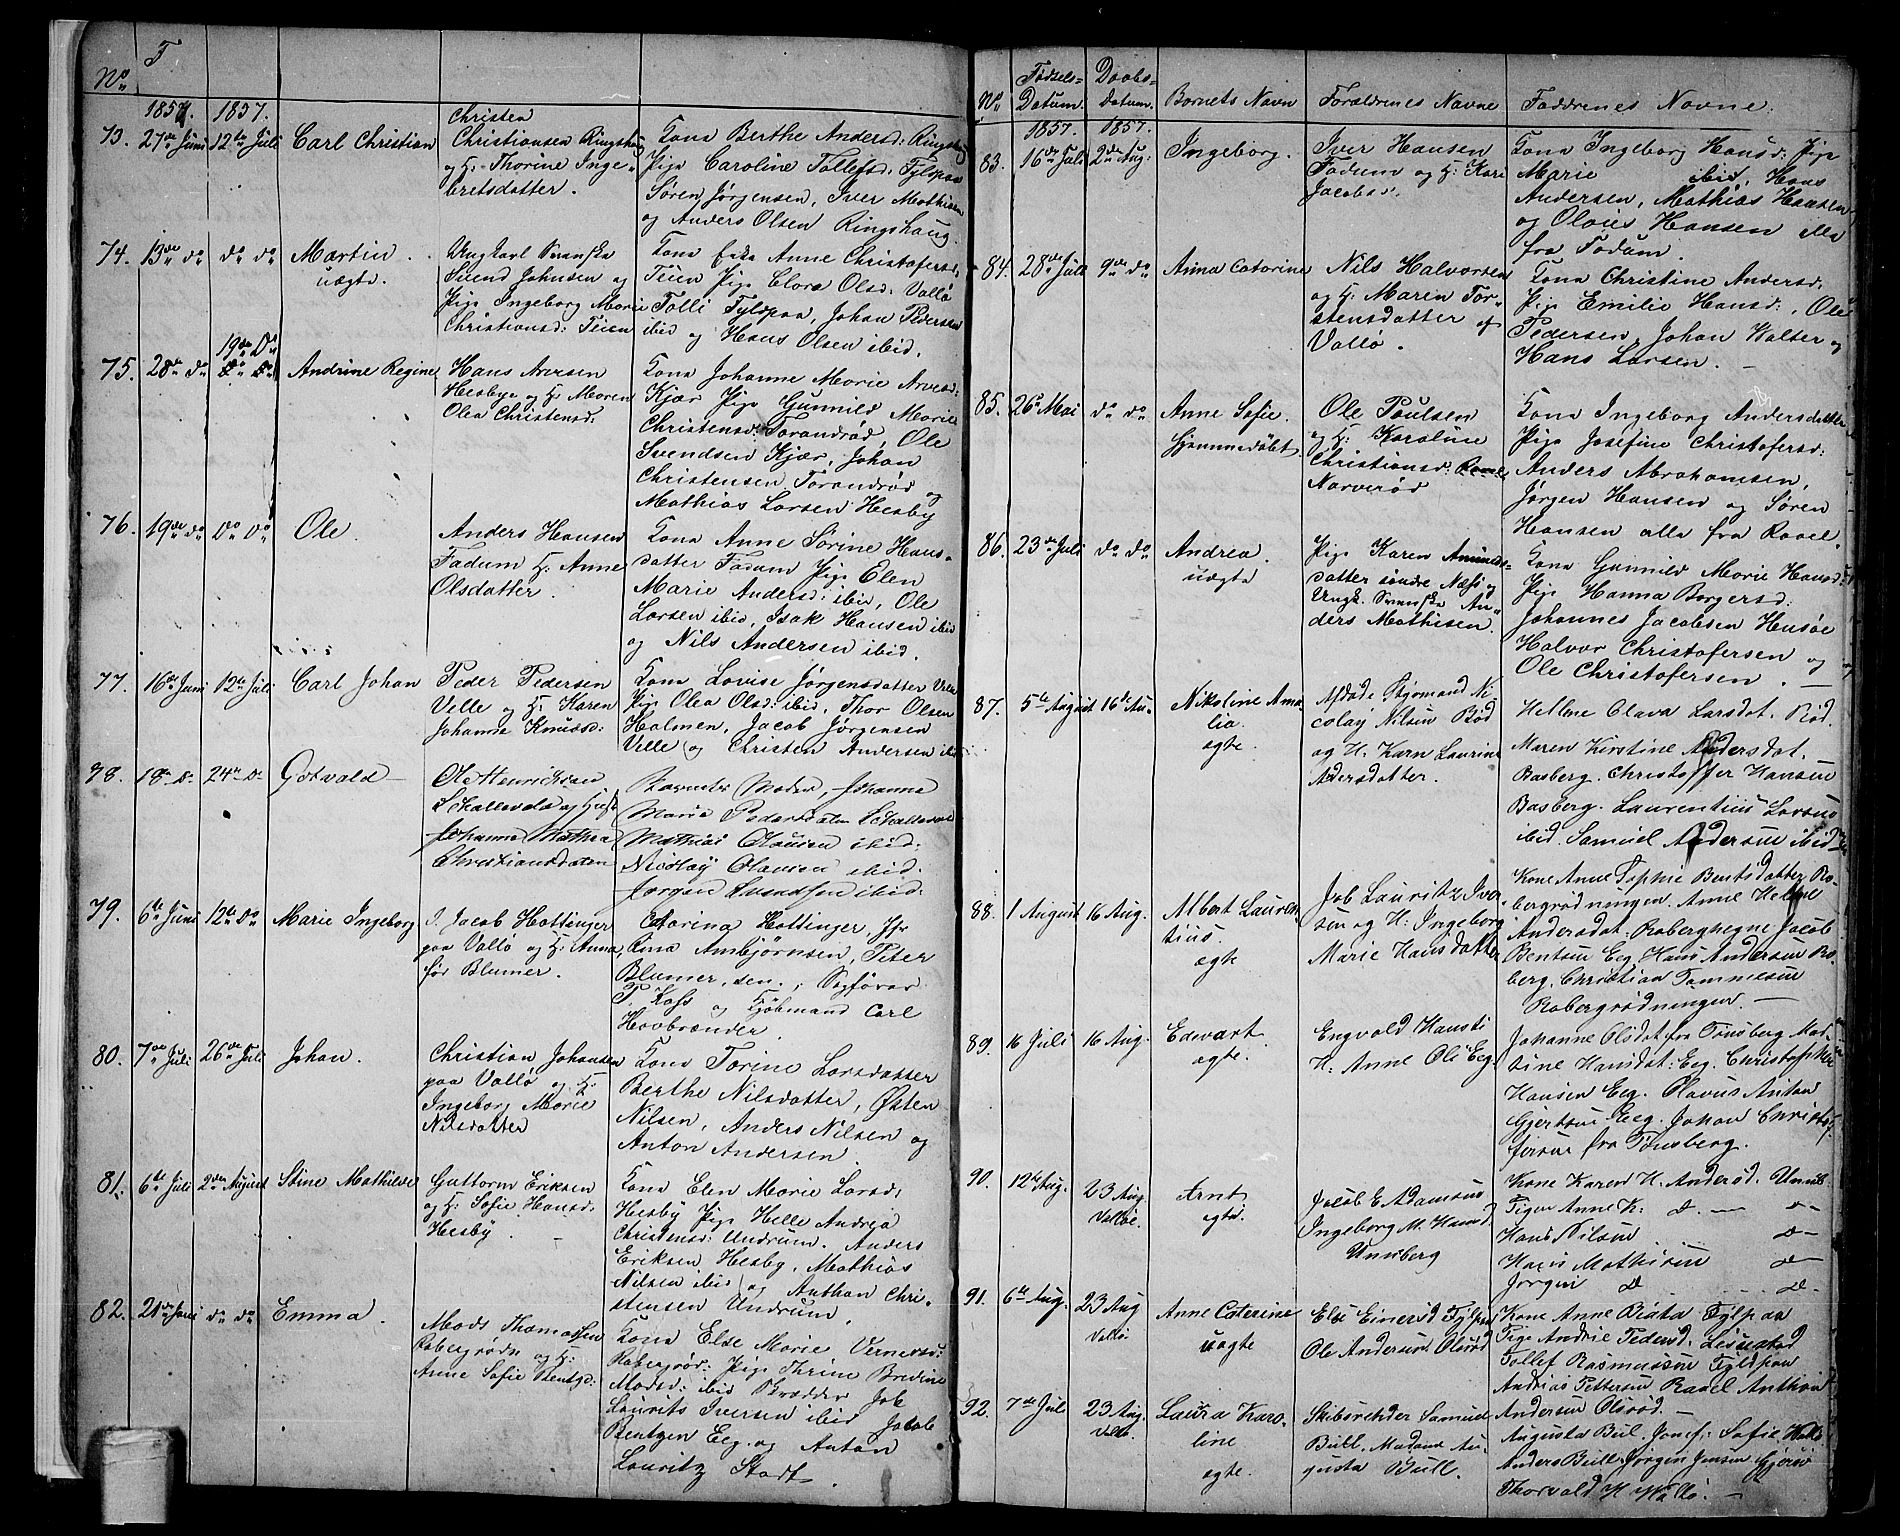 No F
1857. 1857.
73. 27de Juni 12te Juli Carl Christian
Christen
Christiansen Ringshaug
og H: Thorine Inge-
bretsdatter.
Kona Berthe Andersd: Ringshaug
Pige Caroline Tollefsd. Fylpaa
Søren Jørgensen, Iver Mathisen
og Anders Olsen Ringshaug.
74. 13de do do do Martin.
uægte.
Ungkarl Svenske
Svend Johnsen og
Pige Ingeborg Marie
Christiansd: Teien
Kona Anne Christofersd,
Teien Pige Clara Olsd: Vallø
Tolli Fylpaa, Johan Pedersen
ibid og Hans Olsen ibid.
75. 28de do 19de Do Andrine Regine
Hans Arvesen
Hesbye og H: Maren
Olea Christensd:
Kona Johanne Marie Arvesd:
Kjær Pige Gunnild Marie
Christensd: Torandrød, Ole
Svendsen Kjær, Johan
Christensen Torandrød og
Mathias Larsen Hesby
76. 19de do Do Do Ole.
Anders Hansen
Fadum H: Anne
Olsdatter.
Kona Anne Sørine Hans-
datter Fadum Pige Elen
Marie Andersd: ibid, Ole
Larsen ibid, Isak Hansen ibid
og Nils Andersen ibid.
77. 16de Juni 12te Juli Carl Johan
Peder Pedersen
Velle og H: Karen
Johanne Knudsd:
Kona Lovise Jørgensdatter Velle
Pige Olea Olsd: ibid, Thor Olsen
Holmen, Jacob Jørgensen
Velle og Christen Andersen ibid
78. 18de Do 24de Do Gotvald
Ole Henriksen
Skallevold og Hust
Johanna Mathea
Christiansdaten
Barnets Moder, Johanna
Maria Pedersdaten Skallevold
Mathias Olausen ibid:
Nicolay Olausen ibid.
Jørgen Svendsen ibid.
79. 6te Juni 12te do Marie Ingeborg
J. Jacob Hottinger
paa Vallø og H: Anna,
før Blumer.
Catarina Hottinger, Jfr
Rina Ambjørnsen, Peter
Blumer, sen., Sagfører
P. Kass og Kjøbmand Carl
Hovbrænder
80. 7de Juli 26de Juli Johan.
Christian Johansen
paa Vallø og H:
Ingeborg Marie
Nilsdatter
Kona Torine Larsdatter
Berthe Nilsdatter, Østen
Nilsen, Anders Nilsen og
Anton Andersen.
81. 6te Juli 2den August Stine Mathilde
Guttorm Eriksen
og H: Sofie Hansd:
Hesby.
Kona Elen Marie Larsd,
Hesby Pige Helle Andrea
Christensd: Undrum. Anders
Eriksen Hesby, Mathias
Nilsen ibid og Anthon Chri-
stensen Undrum.
82. 21de Juni do do Emma.
Mads Thomassen
Robergrødn og H:
Anne Sofie Bentsd:
Kona Else Marie Vernersd:
Robergrød: Pige Thrine Bredine
Madsd: ibid Skrædder Job
Laurits Iversen ibid Jacob
Bentzen Eeg. og Anton
Lauritz Stadt
No Fødsels-Datum. Daabs-datum. Barnets Navn Forældrenes Navne Faddrenes Navne.
1857. 1857.
83. 16de Juli 2den Aug: Ingeborg.
Iver Hansen
Fadum og H: Kari
Jacobsd.
Kona Ingeborg Hansd: Pige
Marie ibid, Hans
Andersen, Mathias Hansen
og Olaus Hansen alle
fra Fadum.
84. 28de Juli 9de do Anna Catarine
Nils Halvorsen
og H: Maren Tor-
stensdatter af
Vallø.
Kona Christine Andersd,
Pige Emilie Hansd:, Ole
Pedersen, Johan Walter og
Hans Larsen.
85. 26de Mai do do Anne Sofie.
Hjemmedøbt.
Ole Poulsen
og H: Karoline
Christiansd:
Narverød
Kona Ingeborg Andersdatter
Pige Josefine Christofersd:
Anders Abrahamsen,
Jørgen Hansen og Søren
Hansen alle fra Raael.
86. 23de Juli do do Andrea.
uægte
Pige Karen Amunds-
datter søndre Næss og
Ungk. Svenske An-
ders Mathisen.
Kona Gunnild Marie Hansd:
Pige Hanna Borgersd:
Johannes Jacobsen Husøe
Halvor Christofersen og
Ole Christofersen.
87. 5te August 16de Au. Nikoline Ama-
lia
ægte.
Afdøde Styrmand Ni-
colay Nilsen Rød
og H. Karn Laurine
Andersdatter.
Hellene Olava Larsdat. Rød.
Maren Kirstine Andersdat.
Basberg. Christoffer Hansen
Basberg. Laurentius Larsen
ibid. Samuel Andersen ibid
88. 1 August 16 Aug. Albert Lauren-
tius.
ægte
Job Lauritz Iver-
sen og H: Ingeborg
Marie Hansdatter
Kone Anne Sophie Bentsdatter Ro-
bergrødningen. Anne Helene
Andersdat. Roberghegne Jacob
Bentsen Eeg, Hans Andersen Ro-
berg. Christian Tommesen
Robergrødningen.
89. 16 Juli 16 Aug. Edvart
ægte.
Engvald Hansen
H. Anne Ols Eeg
Johanne Olsdat fra Tønsberg Mar-
tine Hansdat: Eeg. Christopher
Hansen Eeg. Olavus Anton
Gjertsen Eeg. Johan Christof-
fersen fra Tønsberg.
90. 12te Aug. 23 Aug.
Valløe.
Arnt
ægte.
Jacob E. Adamsen
Ingeborg M. Hansd.
Unneberg
Kone Karen H. Andersd. Unneb.
Pigen Anne K: d. d
Hans Nilsen d
Hans Mathisen d
Jørgen d d.
91. 6te Aug. 23 Aug
Vallø
Anne Caterine
uægte
Else Einersd Fylpaa
Ole Andersen Olsrød
Kone Anne Beata Fylpaa
Pige Andrie Pedersd.
Tollef Rasmussen Fylpaa
Andrias Pettersen Raael Anthon
Andersen Olsrød.
92. 7de Juli 23 Aug.
Vallø.
Laura Karo-
line
ægte.
Skibsreder Samuel
Bull. Madame Au-
gusta Bull.
Augusta Bull. Jomf: Sofie
Anders Bull. Jørgen Jensen
Thorvald H Vallø.